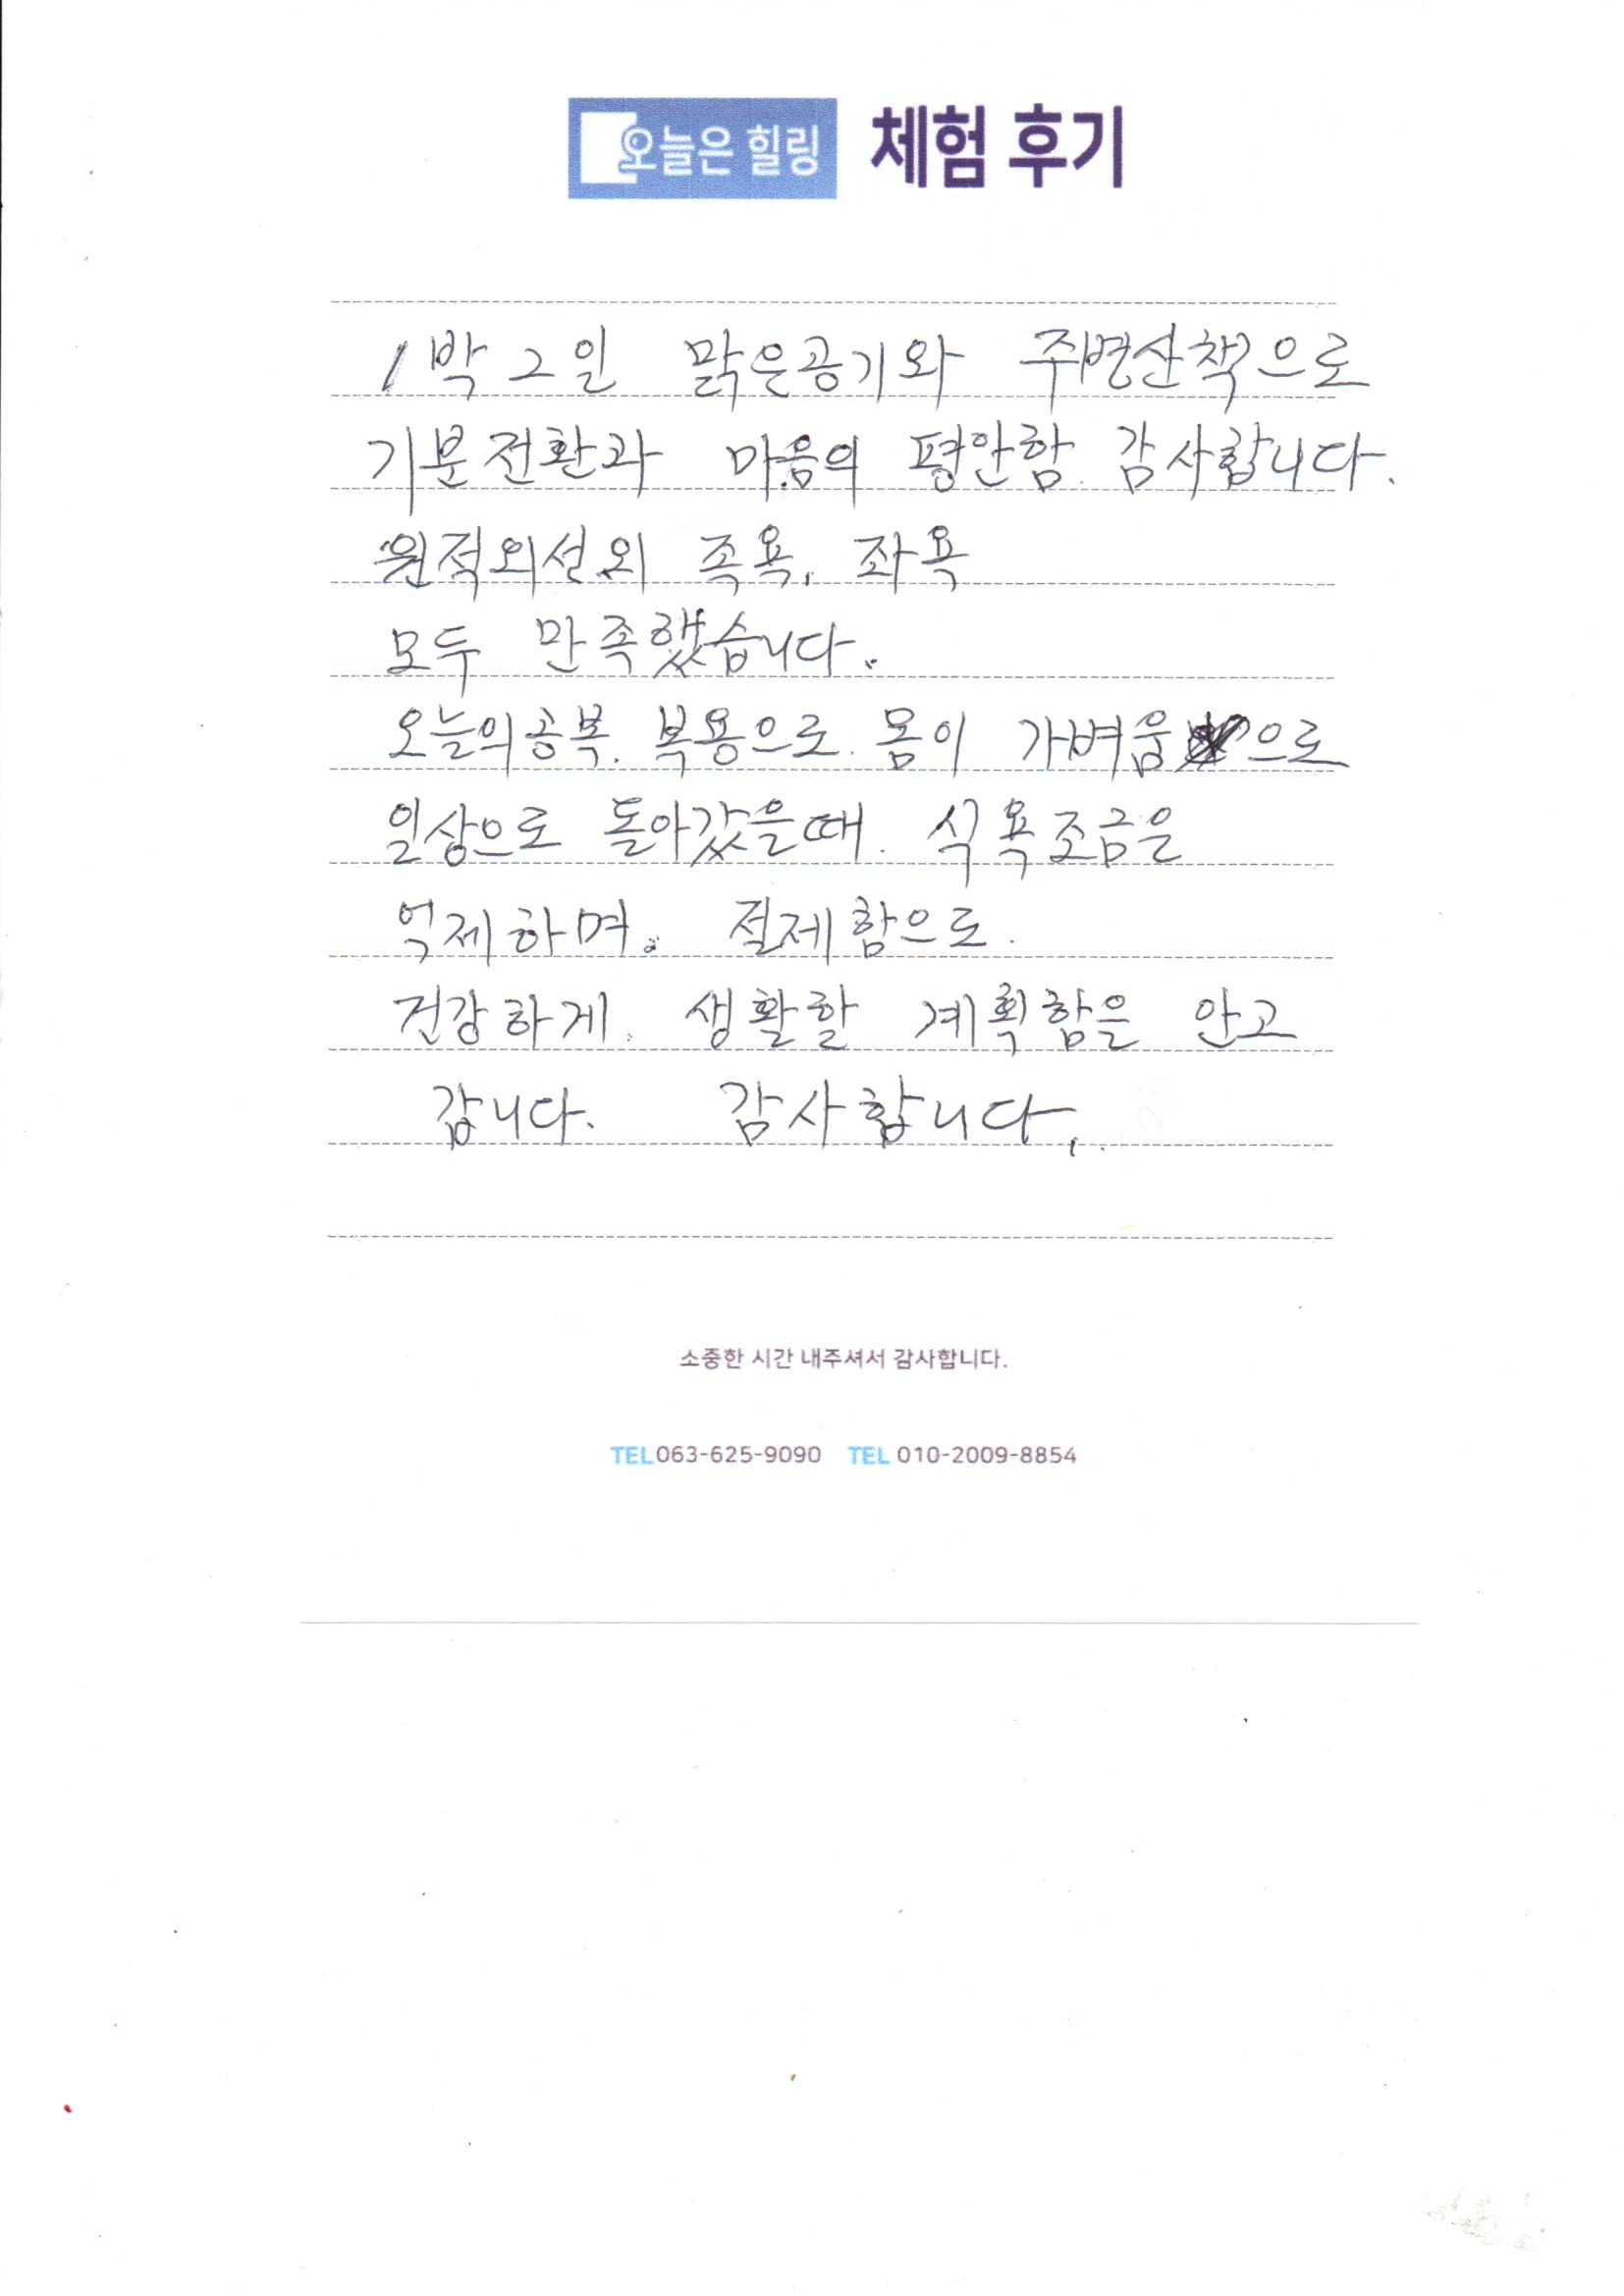 오늘은 힐링 체험 후기
1박 2일 맑은공기와 주변산책으로
기분전환과 마음의 평안함. 감사합니다.
원적외선외 족욕, 좌욕
모두 만족했습니다.
오늘의공복. 복용으로. 몸이 가벼움으로
일상으로 돌아갔을때. 식욕조금은
억제하며. 절제함으로.
건강하게. 생활할 계획함을 안고
갑니다. 감사합니다.
소중한 시간 내주셔서 감사합니다.
TEL 063-625-9090 TEL 010-2009-8854